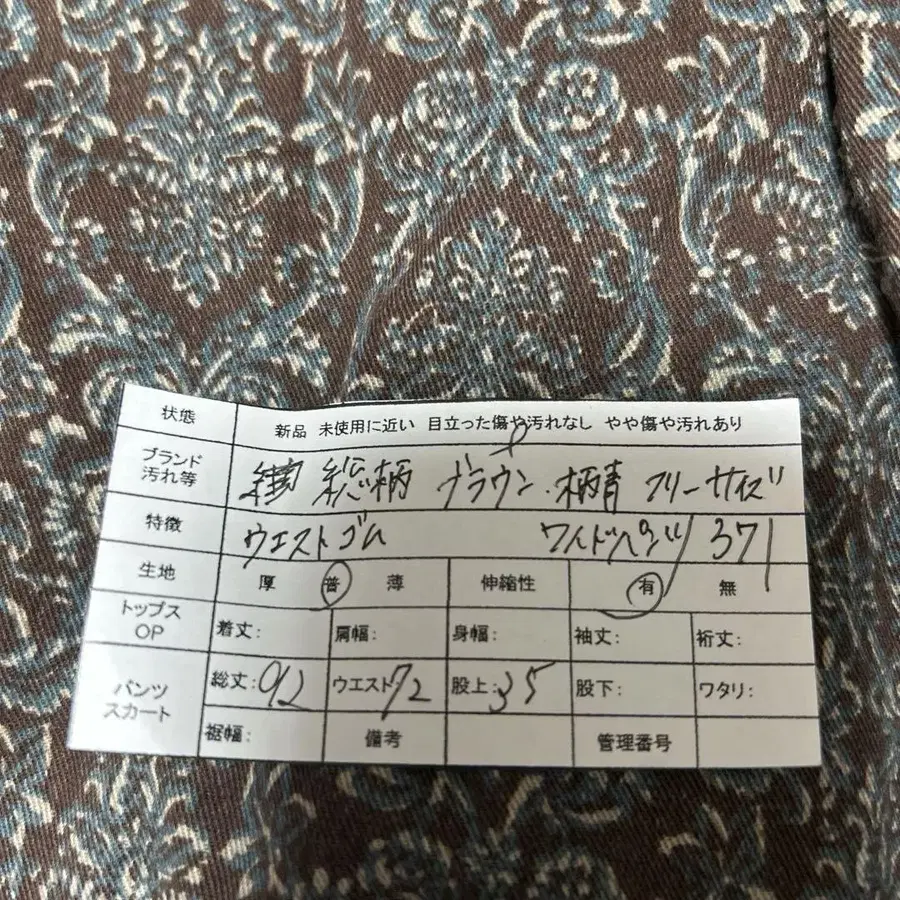 状態 新品 未使用に近い 目立った傷や汚れなし やや傷や汚れあり
ブランド 汚れ等 総柄 ブラウン・柄青 フリーサイズ
特徴 ウエストゴム ワイドパンツ 371
生地 厚 普 薄 伸縮性 有 無
トップス OP 着丈: 肩幅: 身幅: 袖丈: 裄丈:
パンツ スカート 総丈:92 ウエスト72 股上:35 股下: ワタリ:
裾幅: 備考 管理番号